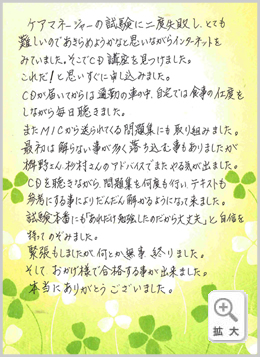 ケアマネージャーの試験に二度失敗し、とても
難しいのであきらめようかなと思いながらインターネットを
みていました。そこでCD講座を見つけました。
これだ!と思いすぐに申し込みました。
CDが届いてからは通勤の車中、自宅では食事の仕度を
しながら毎日聴きました。
またMICから送られてくる問題集にも取り組みました。
最初は解らない事が多く落ち込む事もありましたが
樹野さん、杉村さんのアドバイスでまたやる気が出ました。
CDを聴きながら、問題集を何度も行い、テキストも
参考にする事によりだんだん解かるようになって来ました。
試験本番にも「あれだけ勉強したのだから大丈夫」と自信を
持ってのぞみました。
緊張もしましたが、何とか無事終りました。
そして おかげ様で合格する事が出来ました。
本当にありがとうございました。
拡大